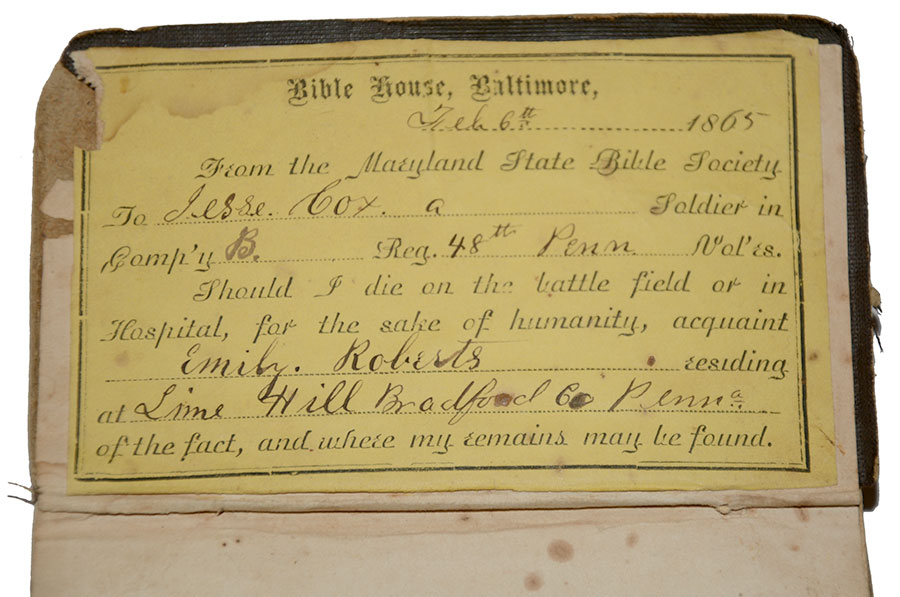 Bible House, Baltimore,
Feb 6th 1865
From the Maryland State Bible Society
To Jesse. Cox. a Soldier in
Comp'y B. Reg. 48th Penn Vol'rs.
Should I die on the battle field or in
Hospital, for the sake of humanity, acquaint
Emily. Roberts residing
at Lime Hill Bradford Co Penna
of the fact, and where my remains may be found.